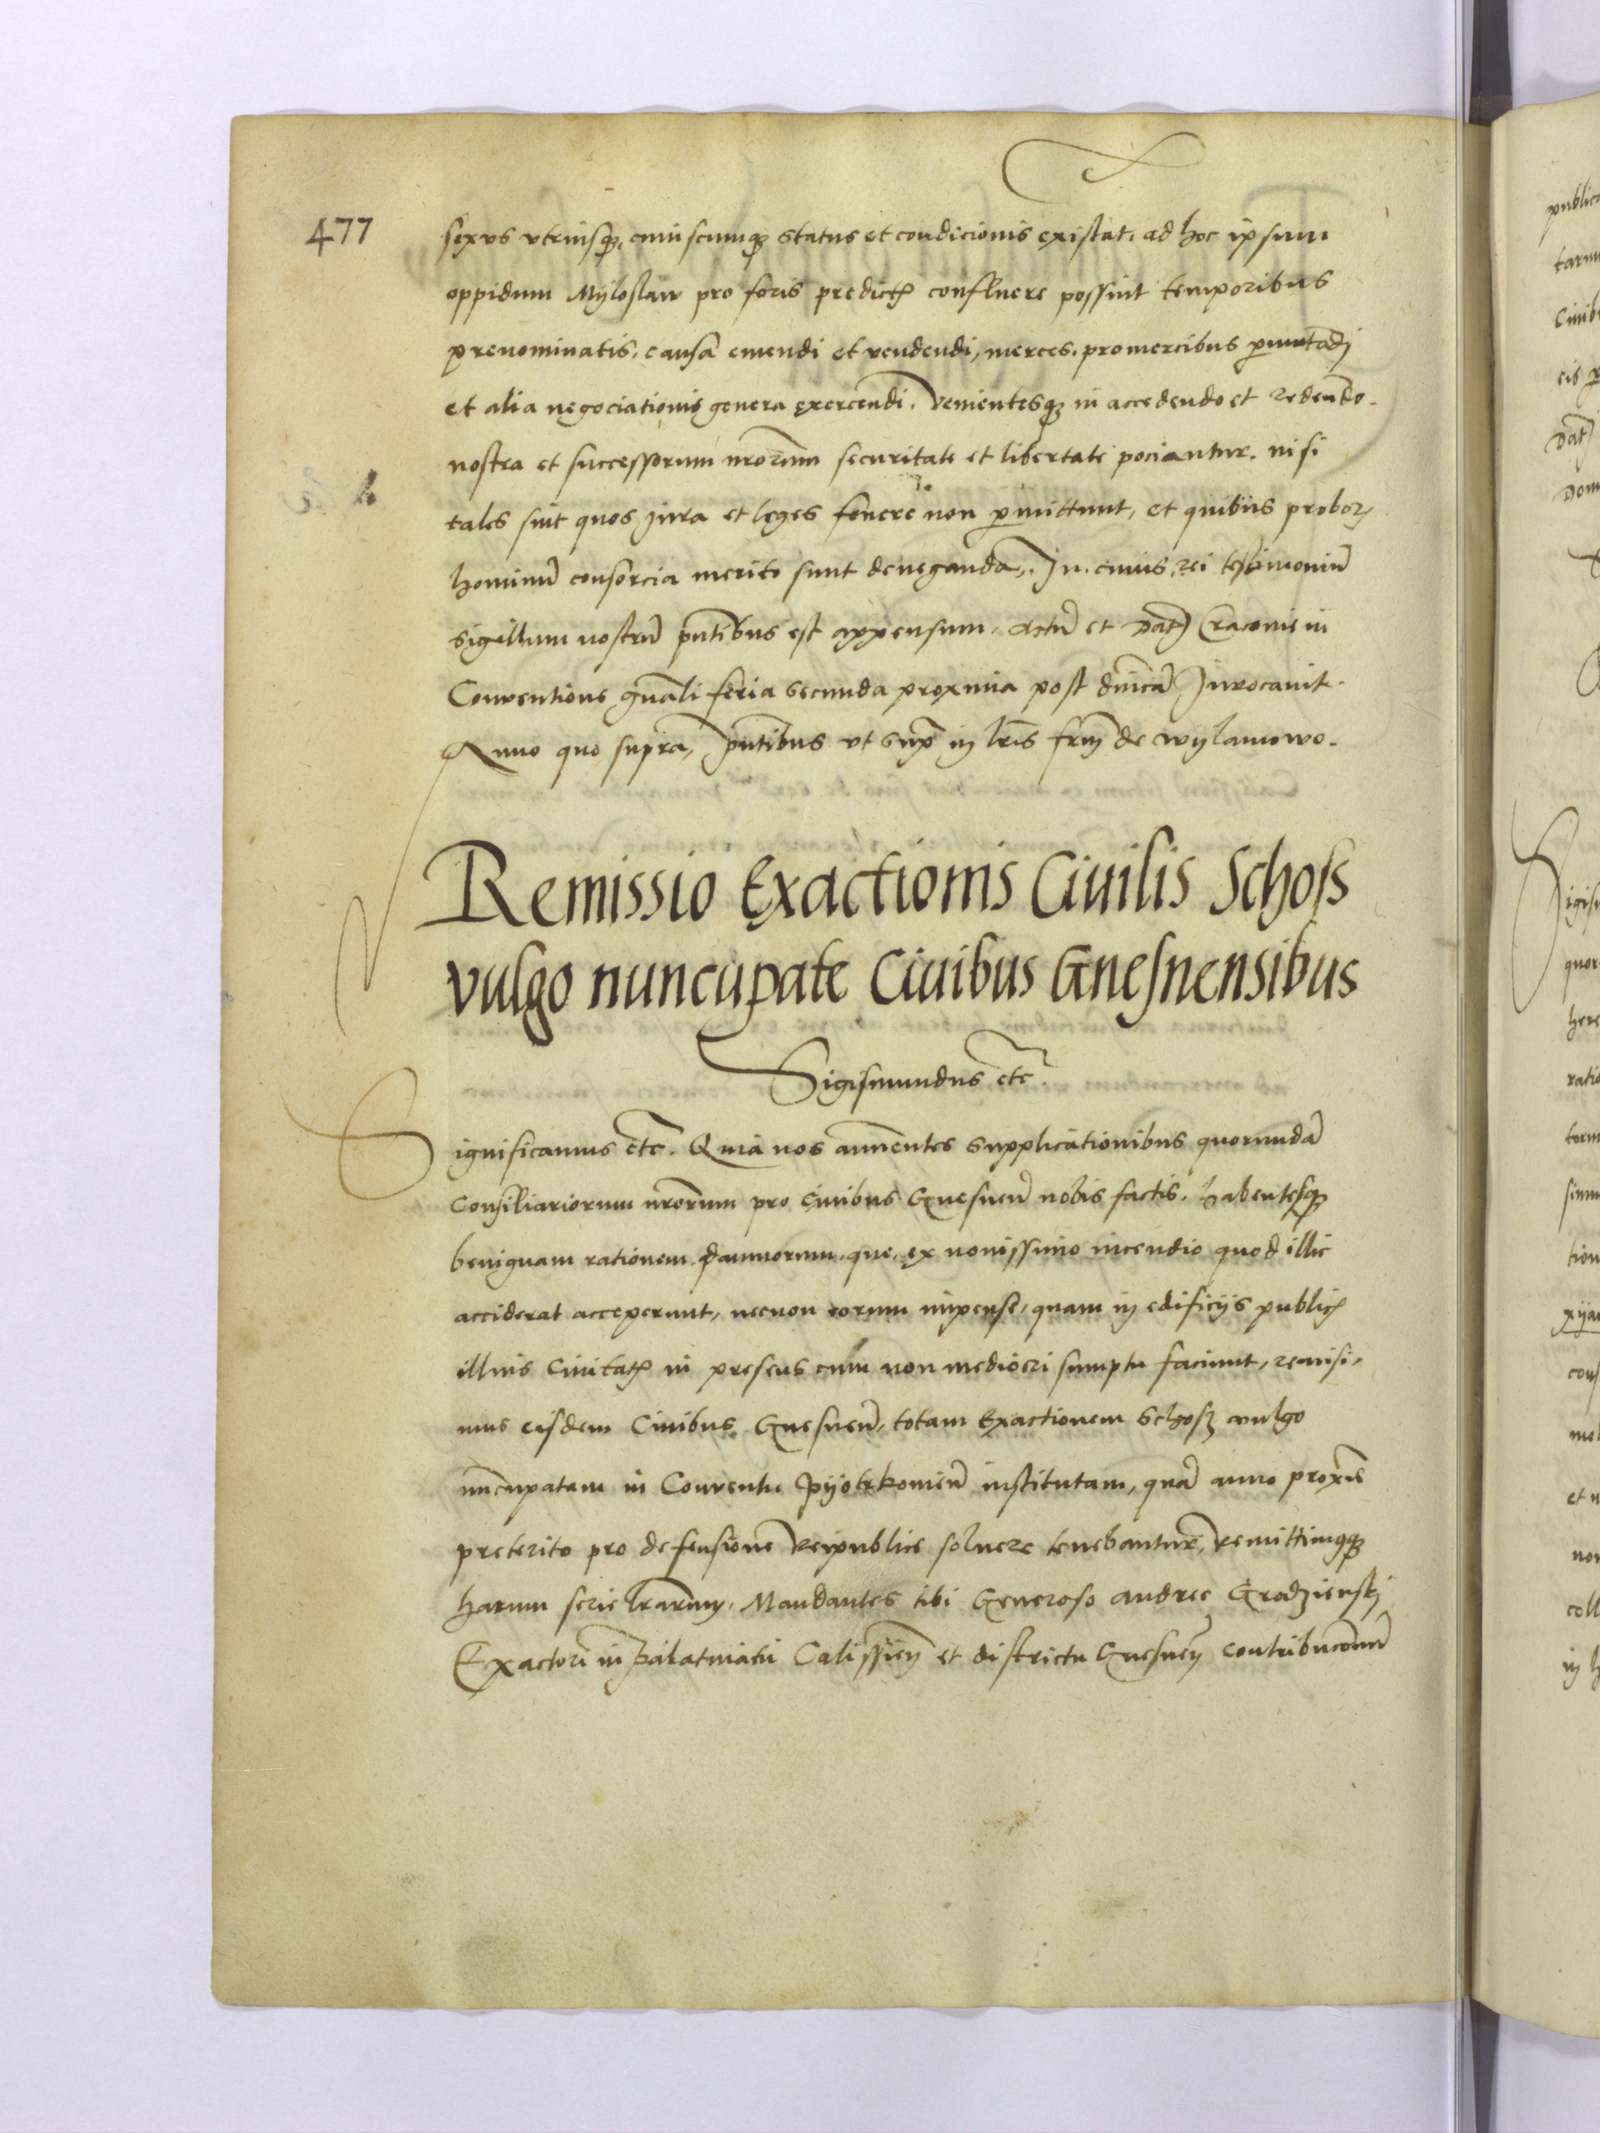 477
sexus vtriusq₃, cuiuscumq₃ status et condicionis existat, ad hoc ipsum
oppidum Myloslaw pro foris predictꝭ confluere possint temporibus
prenominatis, causa emendi et vendendi, merces, pro mercibus ꝑmutādj
et alia negociationis genera exercendi. Venientesq₃ in accedendo et redeundo
nostra et successorum nrōrum securitate et libertate pociantur. nisi
tales sint quos jura et leges fouere non ꝑmittunt, et quibus proborꝝ
hominū consorcia merito sunt deneganda. In cuius rei testimoniū
sigillum nostrū pntībus est appensum. Actū et Datꝭ Cracouie in
Conuentione gnāli feria secunda proxima post dnīcā Inuocauit.
Anno quo supra, pntībus vt supꝛ in lrīs frūm de Wylamowo.
Remissio Exactionis Ciuilis Schoss
vulgo nuncupate Ciuibus Gnesnensibus
Sigismundus etc̄.
Significamus etc̄. Quia nos annuentes supplicationibus quorundā
Consiliariorum nrōrum pro Ciuibus Gnesnen̄ nobis factis, habentesq₃
benignam rationem damnorum, que, ex nouissimo incendio quod illic
acciderat acceperunt, necnon eorum impense, quam in edificijs publicꝭ
illius Ciuitatꝭ in presens cum non mediocri sumptu faciunt, remisi-
mus eisdem Ciuibus Gnesnen̄, totam Exactionem Schosz vulgo
nūcupatam in Conuentu Pyotrkouien̄ institutam, quā anno proxīe
preterito pro defensione Reipublice soluere tenebantur, remittimusq₃
harum serie lrārum. Mandantes tibi Generoso Andree Grodzienskj
Exactori in Palatinatu Calissien̄ et districtu Gnesnen̄ contribucōnū